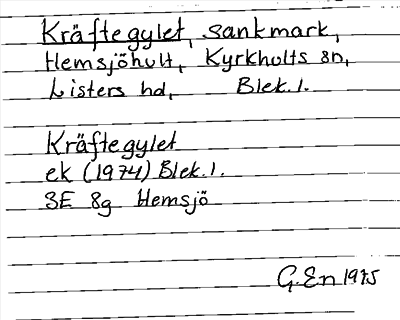 Kräftegylet, sankmark,
Hemsjöhult, Kyrkhults sn,
Listers hd, Blek. l.
Kräftegylet
ek (1974) Blek. l.
3E 8g Hemsjö
G. En 1975